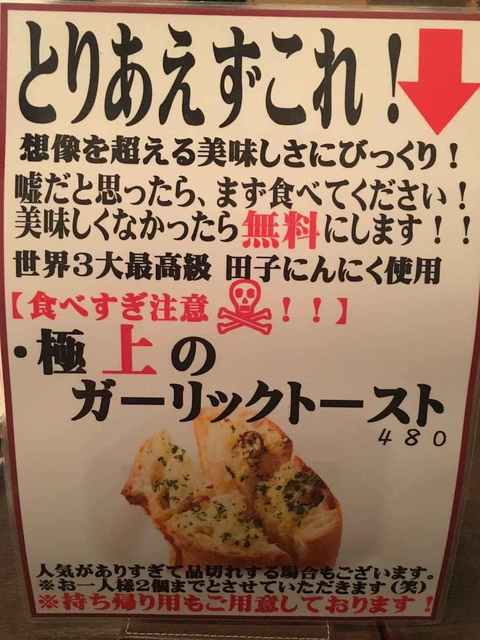 とりあえずこれ！
想像を超える美味しさにびっくり！
嘘だと思ったら、まず食べてください！
美味しくなかったら無料にします！！
世界３大最高級 田子にんにく使用
【食べすぎ注意！！】
・極上の
ガーリックトースト
480
人気がありすぎて品切れする場合もございます。
※お一人様2個までとさせていただきます(笑)
※持ち帰り用もご用意しております！